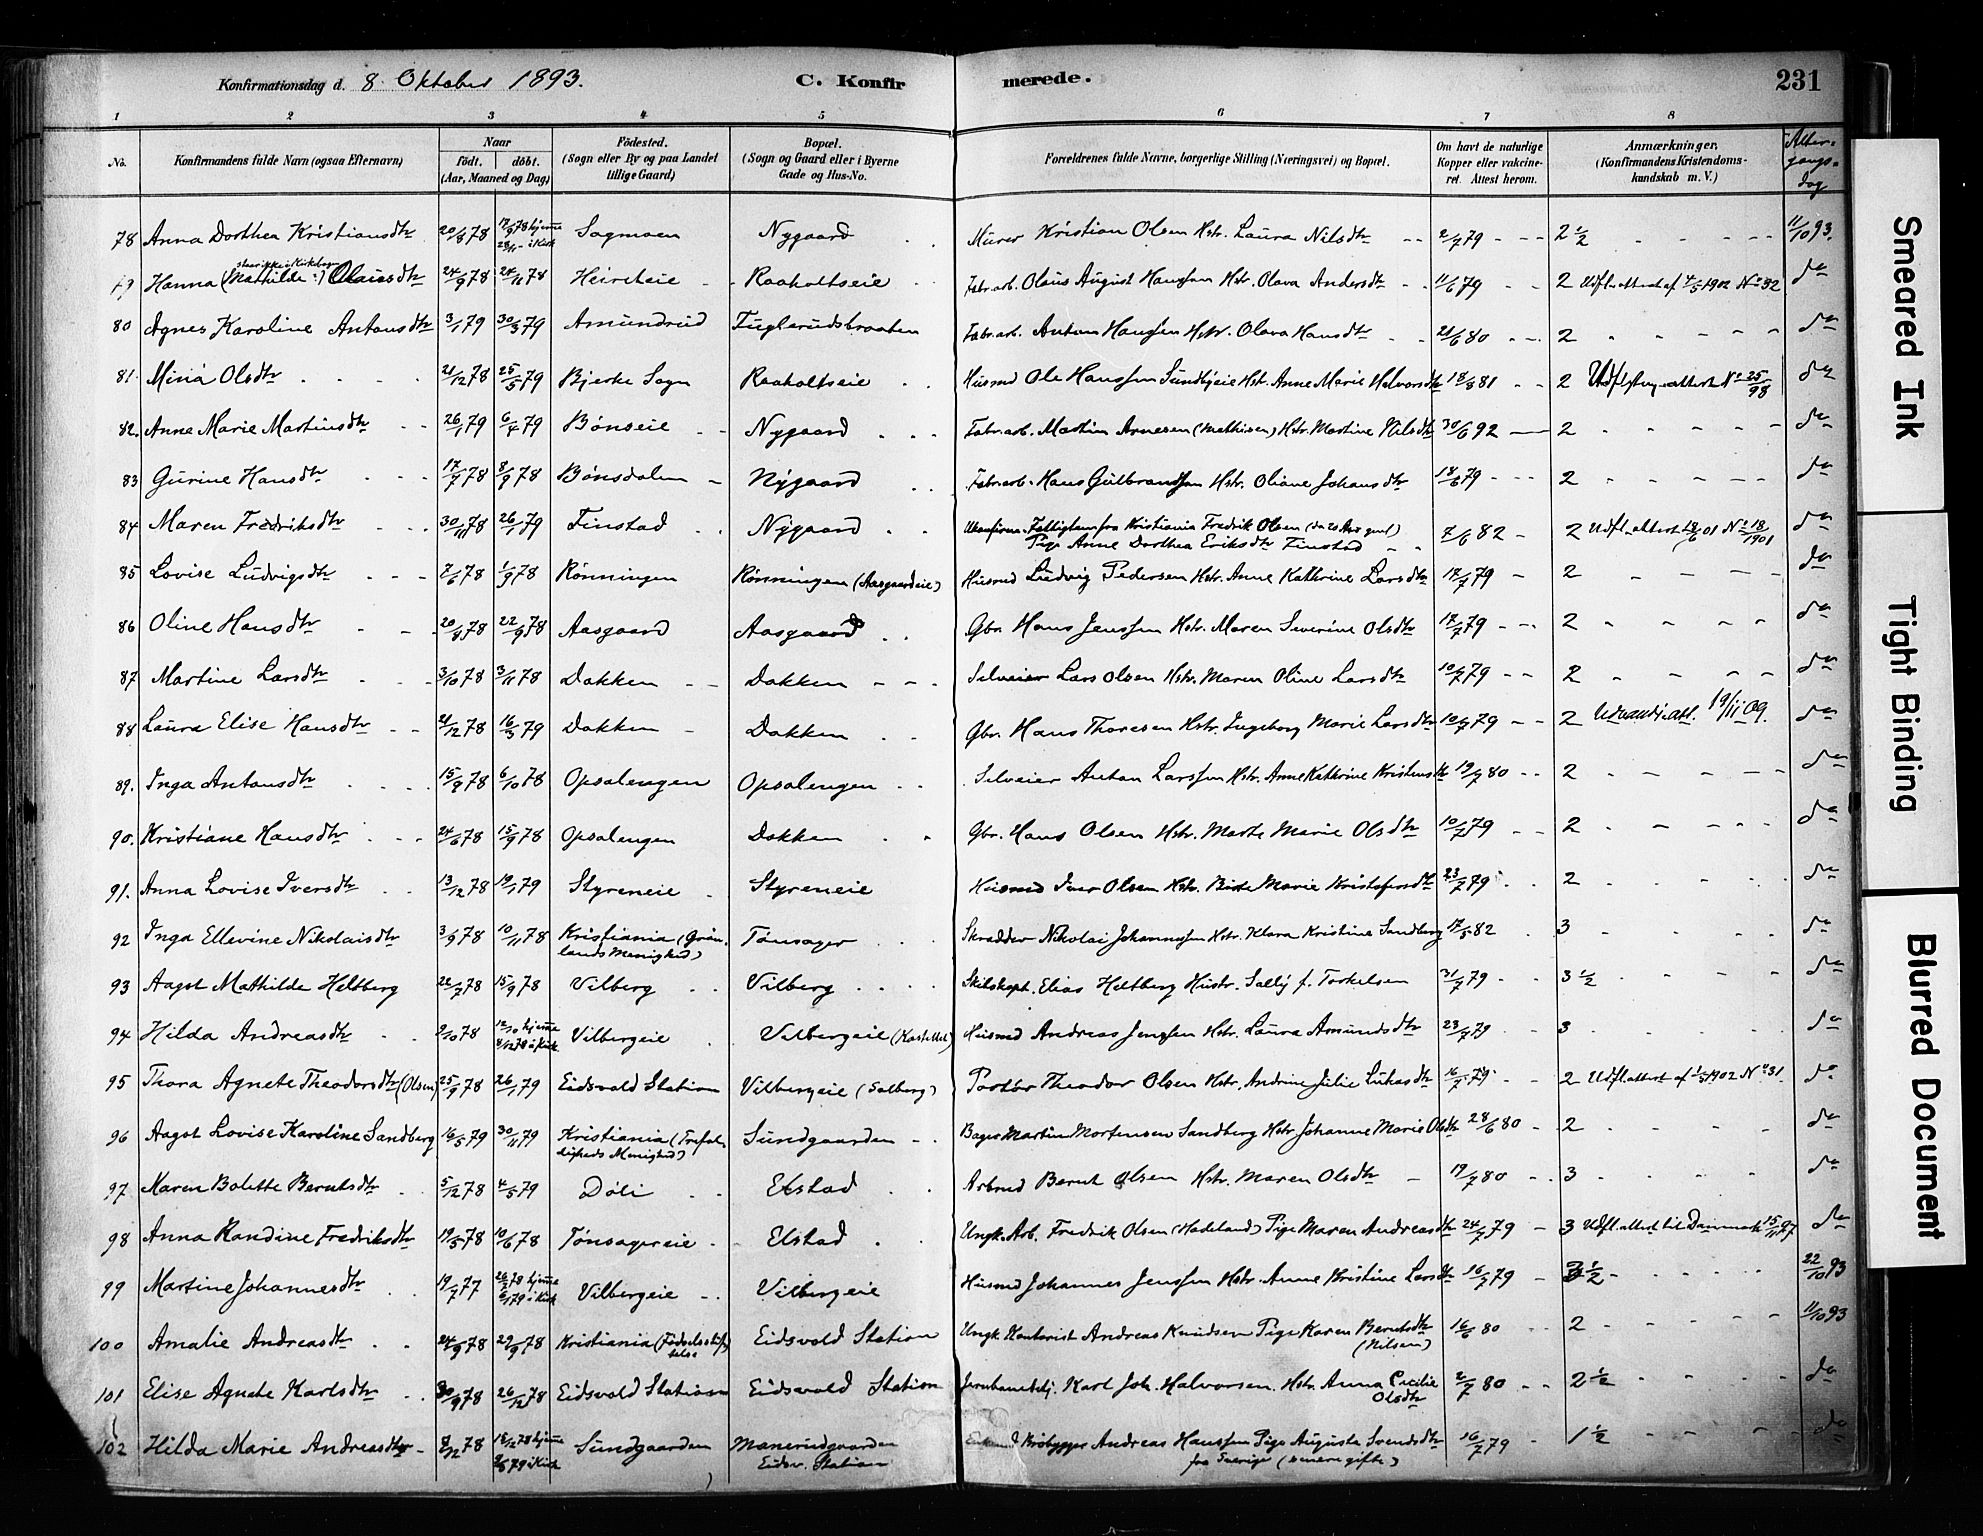 Konfirmationsdag d. 8 Oktober 1893. C. Konfirmerede. 231
1 2 3 4 5 6 7 8
No. Konfirmandens fulde Navn (ogsaa Efternavn) Naar födt. döbt. (Aar, Maaned og Dag) Födested. (Sogn eller By og paa Landet tillige Gaard) Bopæl. (Sogn og Gaard eller i Byerne Gade og Hus-No. Forældrenes fulde Navne, borgerlige Stilling (Næringsvei) og Bopæl. Om havt de naturlige Kopper eller vakcineret. Attest herom. Anmærkninger. (Konfirmandens Kristendomskundskab m. V.) Altergangsdag
78 Anna Dorthea Kristiansdtr 20/8 78 Sagmoen Nygaard Murer Kristian Olsen Hstr. Laura Nilsdtr 2/7 79 2 1/2 11/10 93.
79 Hanna (Mathilde :) Olausdtr 24/9 78 24/11 78 Heireheie Raaholtseie Fabr.arb. Olaus August Hanssen Hstr. Olava Andersdtr 11/6 79 2 Udfl.attest af 4/5 1902 No 32 do
80 Agnes Karoline Antonsdtr 3/1 79 30/3 79 Amundrud Fuglerudsbraaten Fabr.arb. Anton Hanssen Hstr. Olava Hansdtr 21/6 80 2 do
81. Mina Olsdtr 21/12 78 25/5 79 Bjerke Sogn Raaholtseie Husmd Ole Hanssen Sundbyeie Hstr. Anne Marie Halvorsdtr 18/8 81 2 Udflytn.attest No 25/98 do
82. Anne Marie Martinsdtr 26/1 79 6/4 79 Bönseie Nygaard Fabr.arb. Martin Arnesen (Mathisen) Hstr. Martine Nilsdtr 30/6 92 2 do
83 Gurine Hansdtr 17/7 78 8/9 78 Bönsdalen Nygaard Fabr.arb. Hans Gulbrandsen Hstr. Oliane Johansdtr 18/6 79 2 do
84 Maren Fredriksdtr 30/11 78 26/1 79 Finstad Nygaard Ukonfirm. Fattiglem fra Kristiania Fredrik Olsen (da 20 Aar gml) Pige Anne Dorthea Eriksdtr Finstad 7/6 82 2 Udfl.attest 18/6 01 No 18/1901 do
85 Lovise Ludvigsdtr 2/6 78 1/9 78 Rönningen Rönningen (Aasgaardeie) Husmd Ludvig Pedersen Hstr. Anne Kathrine Larsdtr 17/7 79 2 do
86 Oline Hansdtr 20/8 78 22/9 78 Aasgaard Aasgaard Gbr. Hans Jenssen Hstr. Maren Severine Olsdtr 17/7 79 2 do
87 Martine Larsdtr 3/10 78 3/11 78 Dokken Dokken Selveier Lars Olsen Hstr. Maren Oline Larsdtr 10/7 79 2 do
88 Laura Elise Hansdtr 21/12 78 16/3 79 Dokken Dokken Gbr. Hans Thoresen Hstr. Ingeborg Marie Larsdtr 10/7 79 2 Udvandr.att. 19/11 09. do
89. Inga Antonsdtr 15/8 78 6/10 78 Opsalengen Opsalengen Selveier Anton Larssen Hstr. Anne Kathrine Kristensdtr 19/7 80 2 do
90. Kristiane Hansdtr 24/6 78 15/9 78 Opsalengen Dokken Gbr. Hans Olsen Hstr. Marte Marie Olsdtr 10/7 79 2 do
91. Anna Lovise Iversdtr 13/12 78 19/1 79 Styreneie Styreneie Husmd Iver Olsen Hstr. Birte Marie Kristofersdtr 23/7 79 2 do
92 Inga Ellevine Nikolaisdtr 3/9 78 10/11 78 Kristiania (Grönlands Menighed) Tönsager Skrædder Nikolai Johannessen Hstr. Klara Kristine Sandberg 17/5 82 3 do
93 Aagot Mathilde Heltberg 22/7 78 15/9 78 Vilberg Vilberg Skibskapt. Elias Heltberg Hustr. Sally f. Torkelsen 31/7 79 3 1/2 do
94 Hilda Andreasdtr 2/10 78 Vilbergeie Vilbergeie (Kastellet) Husmd Andreas Jenssen Hstr. Laura Amundsdtr 23/7 79 3 do
95 Thora Agnete Theodorsdtr (Olsen) 25/9 78 26/1 79 Eidsvold Station Vilbergeie (Solberg) Portör Theodor Olsen Hstr. Andrine Julie Lukasdtr 16/7 79 2 Udfl.attest af 1/5 1902 No 31. do
96 Aagot Lovise Karoline Sandberg 16/5 79 30/11 79 Kristiania (Trefoldigheds Menighed) Sundgaarden Bager Martin Mortensen Sandberg Hstr Johanne Marie Olsdtr 28/6 80 2 do
97 Karen Bolette Berntsdtr 5/12 78 4/5 79 Döli Elstad Arbmd Bernt Olsen Hstr. Maren Olsdtr 19/7 80 3 do
98 Anna Randine Fredriksdtr 19/5 78 10/6 78 Tönsagereie Elstad Ungk. Arb. Fredrik Olsen (Hadeland) Pige Maren Andreasdtr 24/7 79 3 Udfl.attest til Danmark 15/11 97 do
99 Martine Johannesdtr 19/7 77 Vilbergeie Vilbergeie Husmd Johannes Jenssen Hstr. Anne Kristine Larsdtr 16/7 79 3 1/2 22/10 93
100 Amalie Andreasdtr 24/9 78 29/9 78 Kristiania (Födselsstiftelse) Eidsvold Station Ungk. Kontorist Andreas Knudsen Pige Karen Berntsdtr (Nilsen) 16/6 80 2 11/10 93
101 Elise Agnete Karlsdtr 30/9 78 26/12 78 Eidsvold Station Eidsvold Station Jernbanebetj. Karl Joh. Halvorsen. Hstr. Anna Cecilie Olsdtr 2/7 80 2 1/2 do
102 Hilda Marie Andreasdtr 8/12 78 Sundgaarden Manerudgaarden Eidsv. Station Brobygger Andreas Hanssen Pige Augusta Svendsdtr fra Sverige (senere gifte) 16/7 79 1 1/2 do
Smeared Ink
Tight Binding
Blurred Document